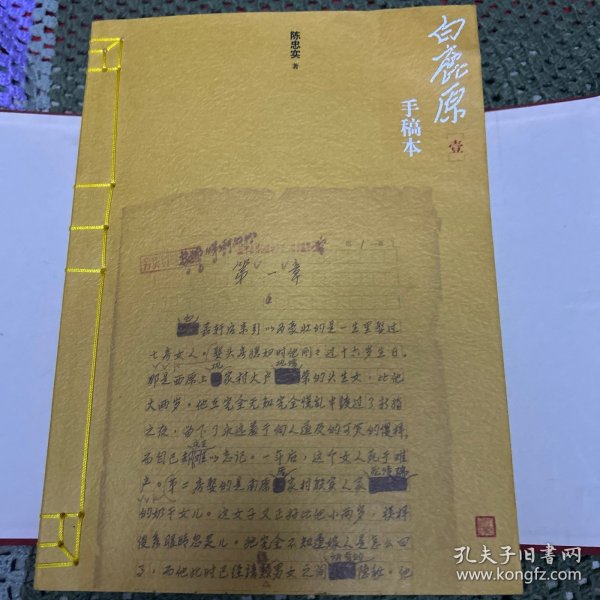 白鹿原
手稿本
壹
陈忠实
著
第 1 页
第一章
嘉轩后来引以为豪壮的是一生里娶过
七房女人。娶头房媳妇时他刚刚过十六岁生日。
那是西原上家村大户的头生女，比他
大两岁。他在完全无知完全慌乱中度过了新婚
之夜，留下了永远羞于向人道及的可笑的傻样，
而自己却难以忘记。一年后，这个女人死于难
产。第二房娶的是南原家村殷实人家
的奶干女儿。这女子又正好比他小两岁，模样
俊秀眼睛忽灵儿。她完全不知道嫁人是怎么回
事，而他此时已经谙熟男女之间隐秘。他
孔夫子旧书网
www.kongfz.com